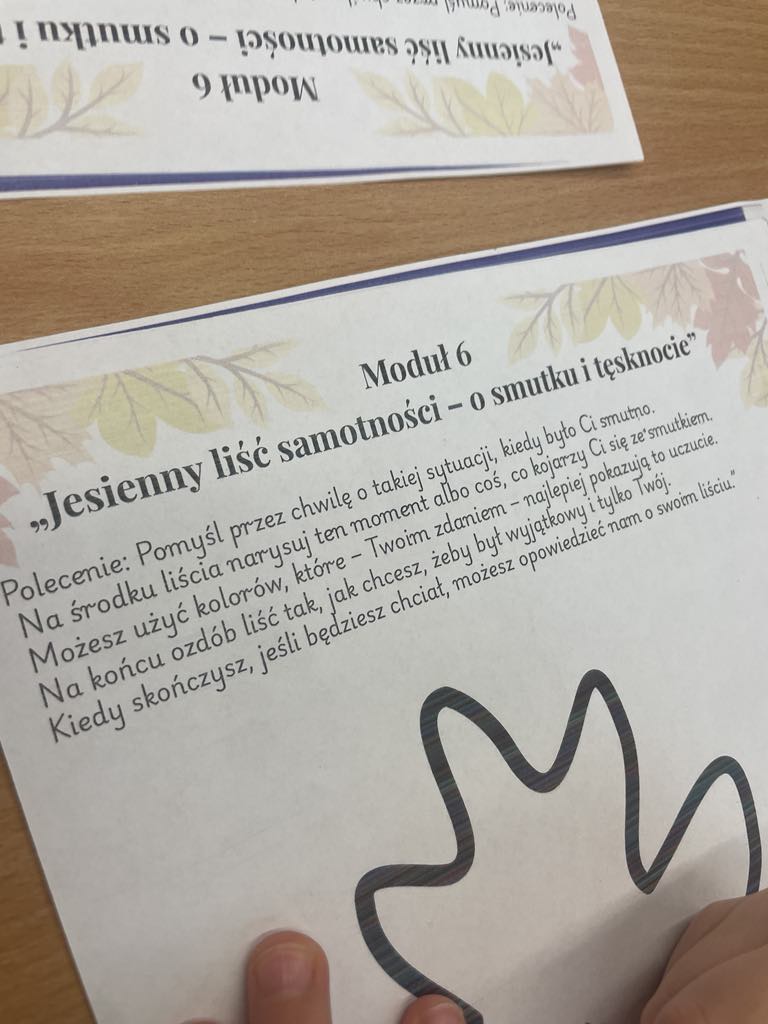 Polecenie: Pomyśl
„Jesienny liść samotności – o smutku i
Moduł 6
Moduł 6
„Jesienny liść samotności – o smutku i tęsknocie”
Polecenie: Pomyśl przez chwilę o takiej sytuacji, kiedy było Ci smutno.
Na środku liścia narysuj ten moment albo coś, co kojarzy Ci się ze smutkiem.
Możesz użyć kolorów, które – Twoim zdaniem – najlepiej pokazują to uczucie.
Na końcu ozdób liść tak, jak chcesz, żeby był wyjątkowy i tylko Twój.
Kiedy skończysz, jeśli będziesz chciał, możesz opowiedzieć nam o swoim liściu.”